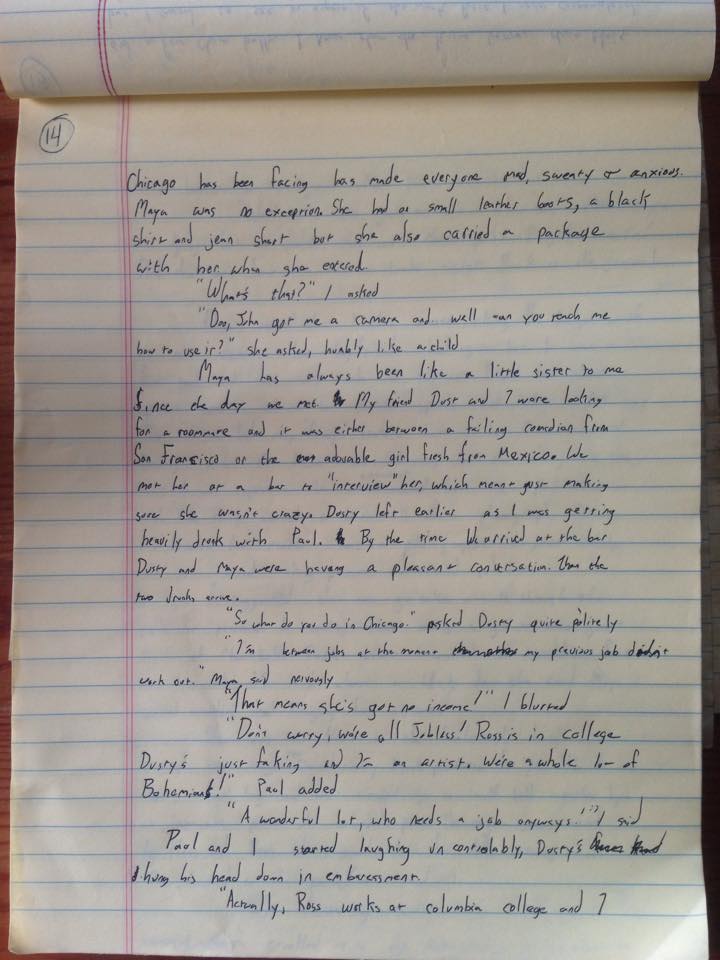 14
Chicago has been facing has made everyone mad, sweaty & anxious.
Maya was no exception. She had on small leather boots, a black
shirt and jean short but she also carried a package
with her when she extered.
"What's that?" I asked
"Doo, John got me a camera and well can you teach me
how to use it?" she asked, humbly like a child
Maya has always been like a little sister to me
since the day we met. My friend Dust and I were looking
for a roommate and it was either between a failing comedian from
San Francisco or the adovable girl fresh from Mexico. We
met her at a bar to "interview" her, which meant just making
sure she wasn't crazy. Dusty left earlier as I was getting
heavily drunk with Paul. By the time We arrived at the bar
Dusty and Maya were having a pleasant conversation. Then the
two drunks arrive.
"So what do you do in Chicago." asked Dusty quite politely
"I'm between jobs at the moment my previous job didn't
work out." Maya said nervously
"That means she's got no income!" I blurted
"Don't worry, we're all Jobless! Ross is in college
Dusty's just faking and I'm an artist. We're a whole lot of
Bohemians!" Paul added
"A wonderful lot, who needs a job anyways!" I said
Paul and I started laughing un controlably, Dusty's
hung his head down in embaressment.
"Actually, Ross works at columbia college and I